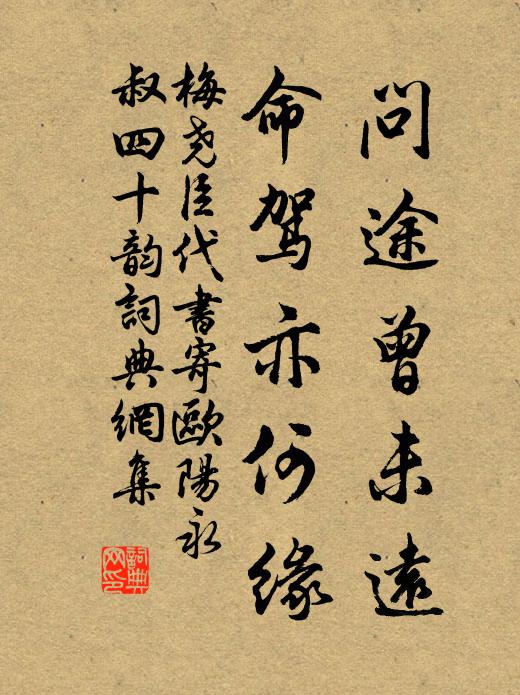 问途曾未远
命驾亦何缘
梅尧臣代书寄欧阳永
叔四十韵词典网集
词典
网印